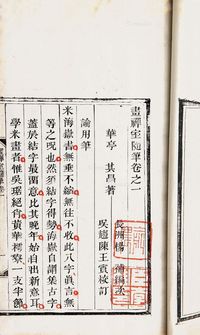 畫禪室隨筆卷之一
華亭 其昌著
長洲楊
吳趨陳王賓校訂
論用筆
米海嶽書無垂不縮無往不收此八字真言無
等等之呪也然須結字得勢海嶽自謂集古字
蓋於結字最留意比其晚年始自出新意耳
學米書者惟吳琚絕肖黃華樗寮一支半節